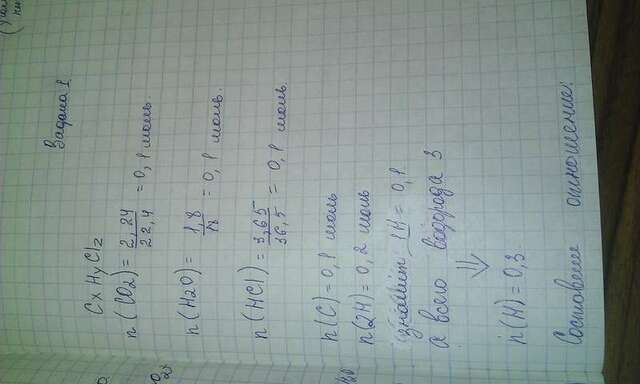 Задача 1.
CxHyClz
n(CO2) = 2,24 / 22,4 = 0,1 моль.
n(H2O) = 1,8 / 18 = 0,1 моль.
n(HCl) = 3,65 / 36,5 = 0,1 моль.
n(C) = 0,1 моль
n(2H) = 0,2 моль
значит 1H = 0,1
а всего водорода 3
⇓
n(H) = 0,3
Составляем отношение: